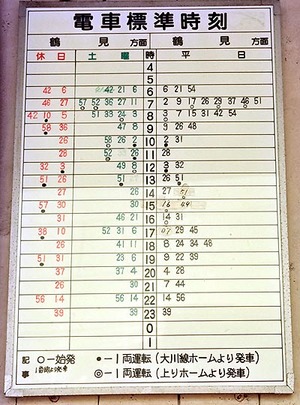 電車標準時刻
鶴見 方面 鶴見 方面
休日 土曜 時 平日
4
5
42 6 42 21 6 6 6 21 54
46 27 57 52 36 27 11 7 2 9 17 26 29 37 46 51
42 10 5 51 33 24 3 8 3 7 15 31 42 54
58 36 47 8 9 9 26 48
58 26 2 10 2 31
28 52 26 11 28
32 3 49 8 12 3 32
51 26 51 13 26 51
27 26 14 27 51
57 30 51 15 16
31 46 21 16 14 31
38 10 52 31 6 17 29 45
26 41 11 18 8 24 34 48
51 31 23 6 19 9 22 39
37 37 4 20 4 28
27 26 21 14 44
56 14 56 14 22 14 56
39 39 23 39
0
1
記事 ○―始発 ●―1両運転(大川線ホームより発車)
◎―1両運転(上りホームより発車)